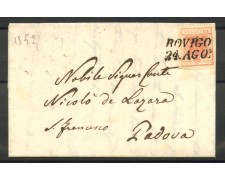 1852
ROVIGO
24. AGO.
Nobile Signor Conte
Nicolò de Lazara
S. Francesco
Padova